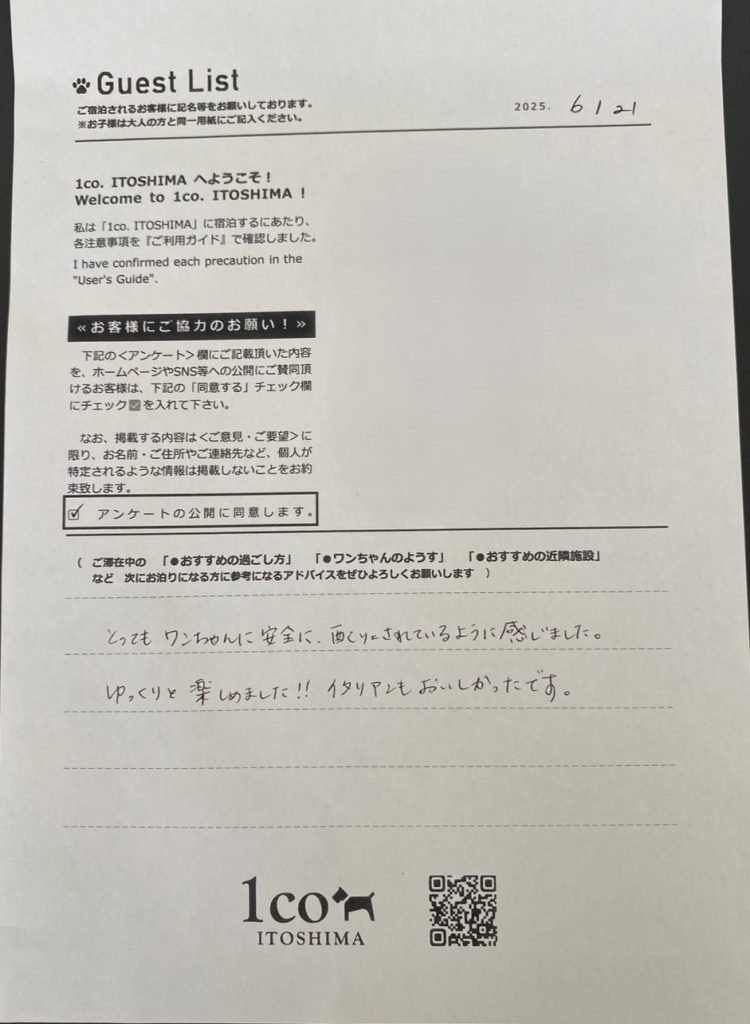 Guest List
ご宿泊されるお客様に記名等をお願いしております。
※お子様は大人の方と同一用紙にご記入ください。
2025. 6 / 21
1co. ITOSHIMA へようこそ！
Welcome to 1co. ITOSHIMA !
私は「1co. ITOSHIMA」に宿泊するにあたり、
各注意事項を『ご利用ガイド』で確認しました。
I have confirmed each precaution in the
"User's Guide".
≪お客様にご協力のお願い！≫
下記の＜アンケート＞欄にご記載頂いた内容
を、ホームページやSNS等への公開にご賛同頂
けるお客様は、下記の「同意する」チェック欄
にチェック☑を入れて下さい。
なお、掲載する内容は＜ご意見・ご要望＞に
限り、お名前・ご住所やご連絡先など、個人が
特定されるような情報は掲載しないことをお約
束致します。
☑ アンケートの公開に同意します。
（ ご滞在中の 「●おすすめの過ごし方」 「●ワンちゃんのようす」 「●おすすめの近隣施設」
など 次にお泊りになる方に参考になるアドバイスをぜひよろしくお願いします ）
とっても ワンちゃんに 安全に、されているように感じました。
ゆっくりと 楽しめました!! イタリアンも おいしかったです。
1co
ITOSHIMA